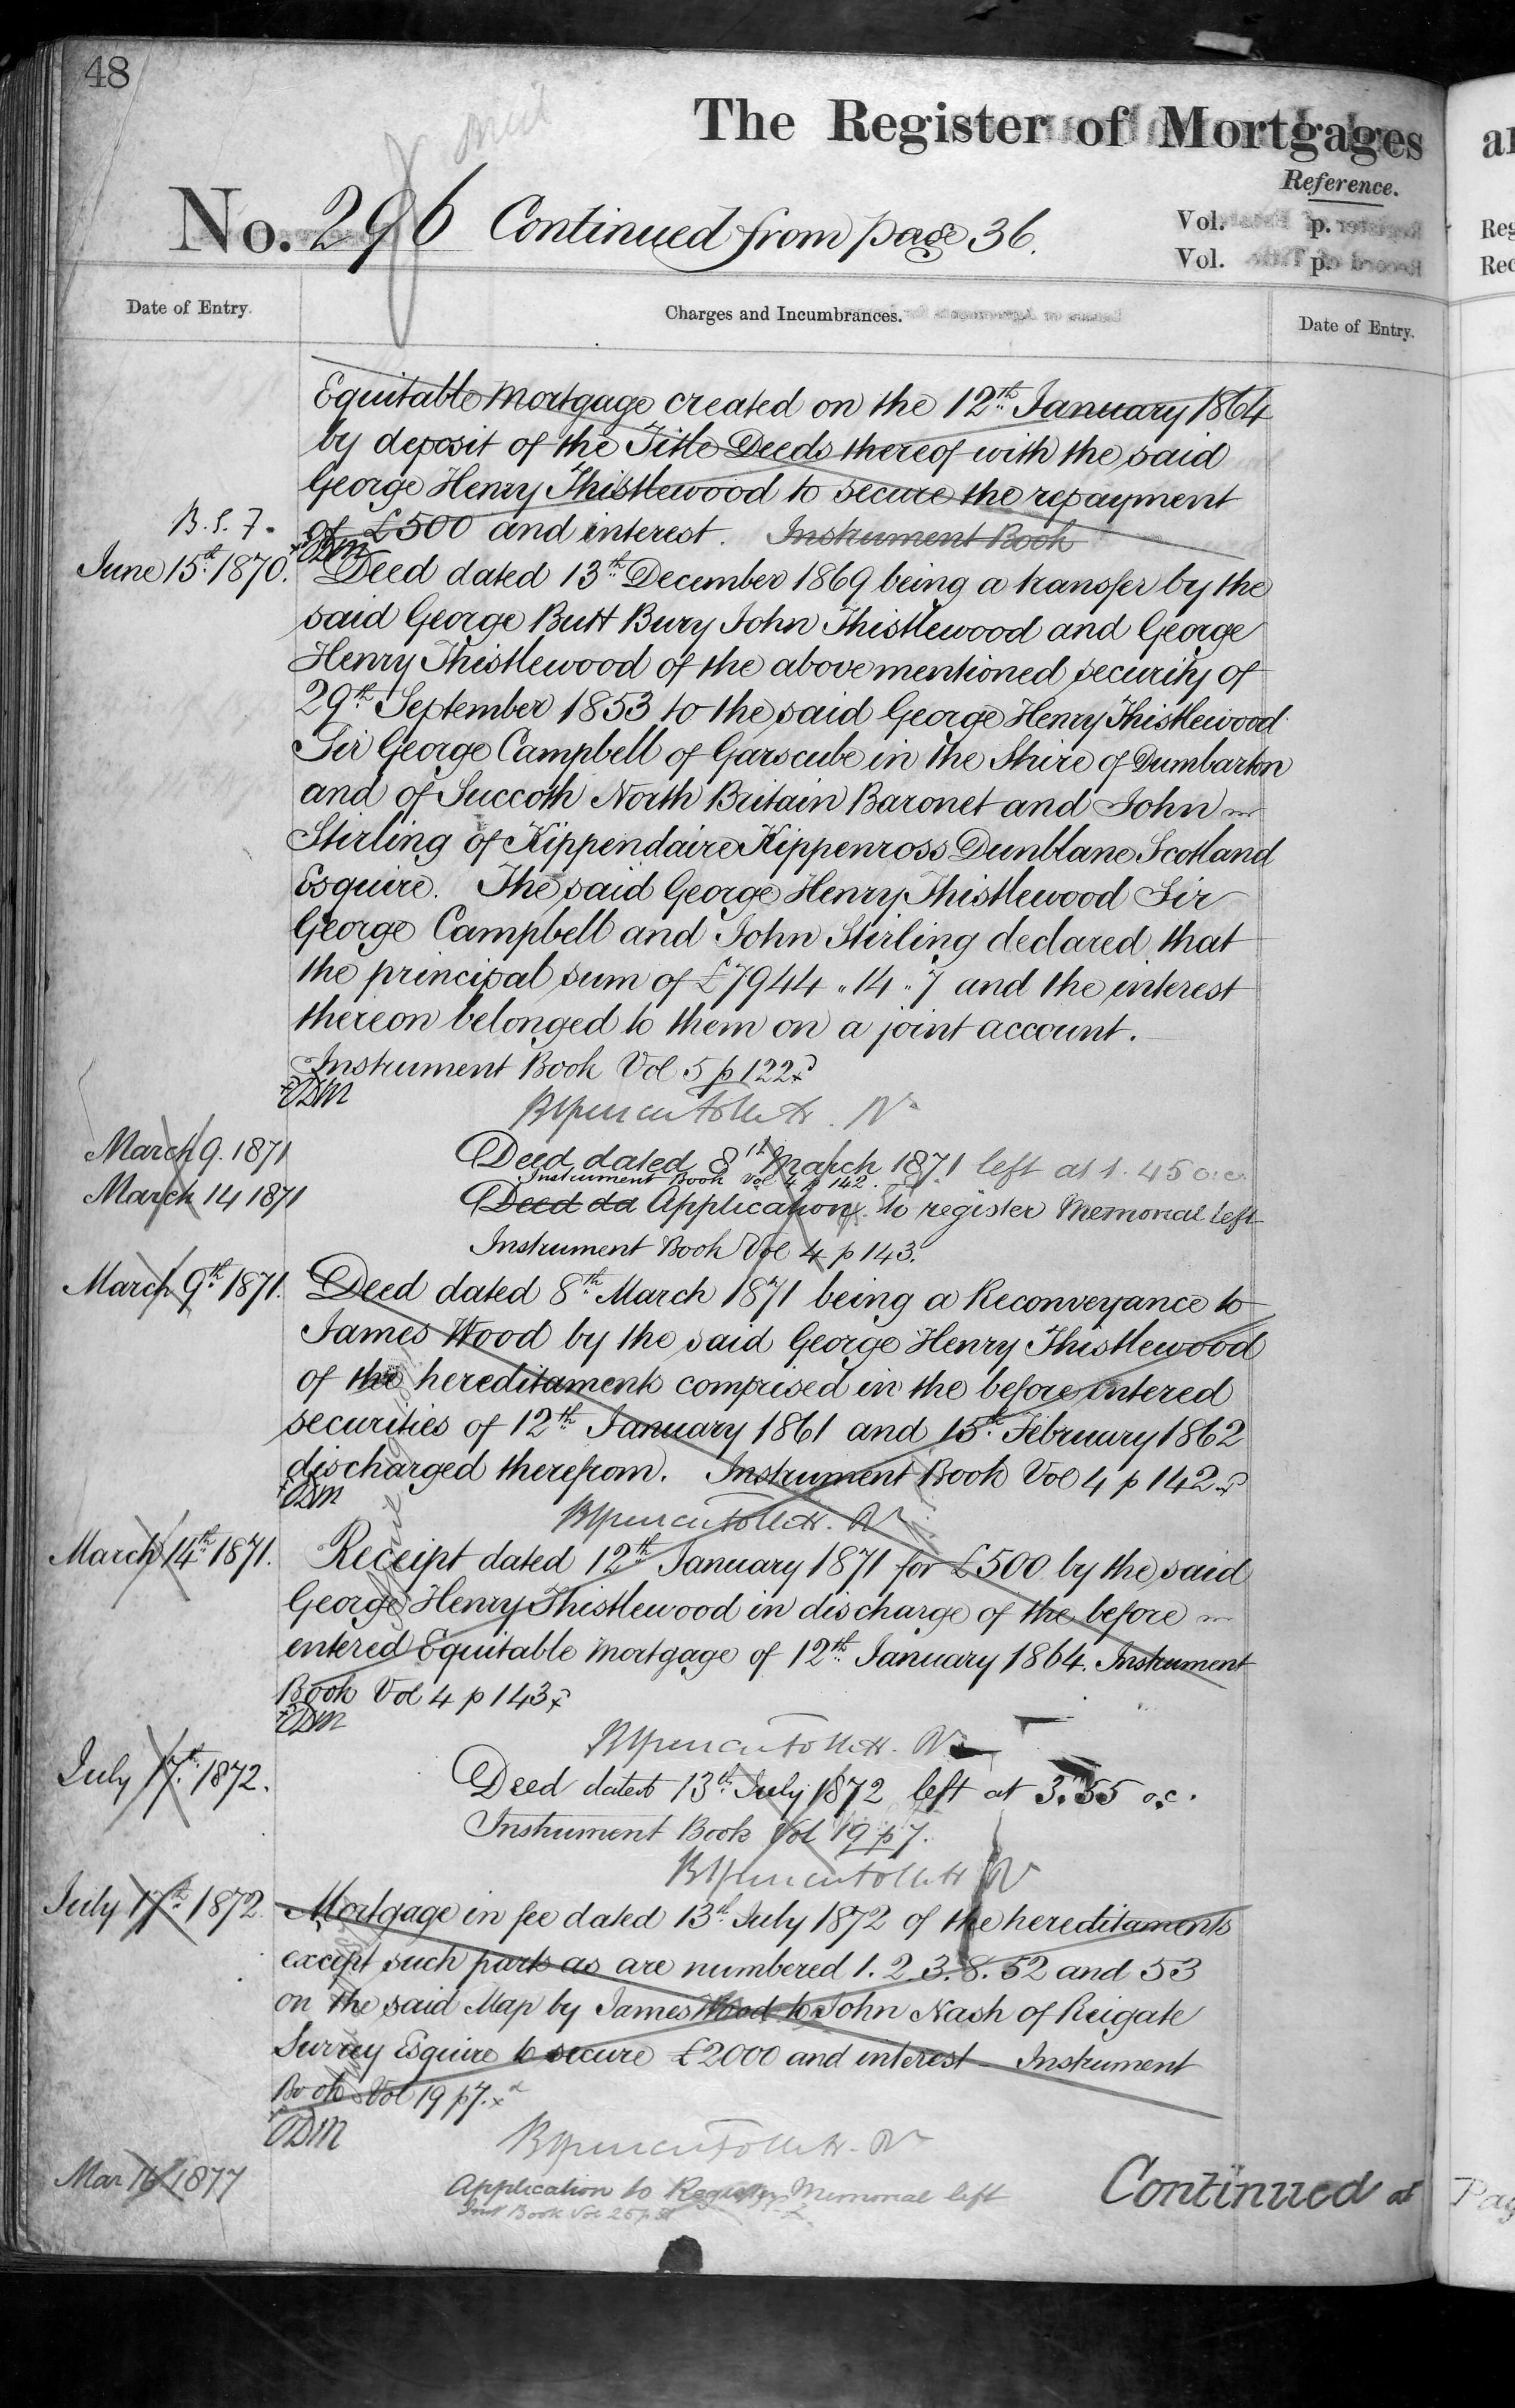 48
The Register of Mortgages
Reference.
No. 296 Continued from page 36.
Vol. p.
Vol. p.
Date of Entry.
Charges and Incumbrances.
Date of Entry.
Equitable Mortgage created on the 12th January 1864
by deposit of the Title Deeds thereof with the said
George Henry Thistlewood to secure the repayment
B.S. 7.
of £500 and interest. Instrument Book
ODM
June 15th 1870. Deed dated 13th December 1869 being a transfer by the
said George Butt Bury John Thistlewood and George
Henry Thistlewood of the above mentioned security of
29th September 1853 to the said George Henry Thistlewood
Sir George Campbell of Garscube in the Shire of Dumbarton
and of Succoth North Britain Baronet and John
Stirling of Kippendaire Kippenross Dunblane Scotland
Esquire. The said George Henry Thistlewood Sir
George Campbell and John Stirling declared that
the principal sum of £7944 " 14 " 7 and the interest
thereon belonged to them on a joint account.
Instrument Book Vol 5 p 122
ODM
March 9. 1871 Deed dated 8th March 1871 left at 1.45 o.c.
Instrument Book Vol 4 p 142.
March 14 1871 Deed dd Application to register Memorial left
Instrument Book Vol 4 p 143.
March 9th 1871. Deed dated 8th March 1871 being a Reconveyance to
James Wood by the said George Henry Thistlewood
of the hereditaments comprised in the before entered
securities of 12th January 1861 and 15th February 1862
discharged therefrom. Instrument Book Vol 4 p 142
ODM
March 14th 1871. Receipt dated 12th January 1871 for £500 by the said
George Henry Thistlewood in discharge of the before
entered Equitable Mortgage of 12th January 1864. Instrument
Book Vol 4 p 143
ODM
July 17th 1872. Deed dated 13th July 1872 left at 3.55 o.c.
Instrument Book Vol 19 p 7.
July 17th 1872. Mortgage in fee dated 13th July 1872 of the hereditaments
except such parts as are numbered 1. 2. 3. 8. 52 and 53
on the said Map by James Wood to John Nash of Reigate
Surrey Esquire to secure £2000 and interest - Instrument
Book Vol 19 p 7.
ODM
Mar 16 1877 Application to Register Memorial left
Inst Book Vol
Continued at